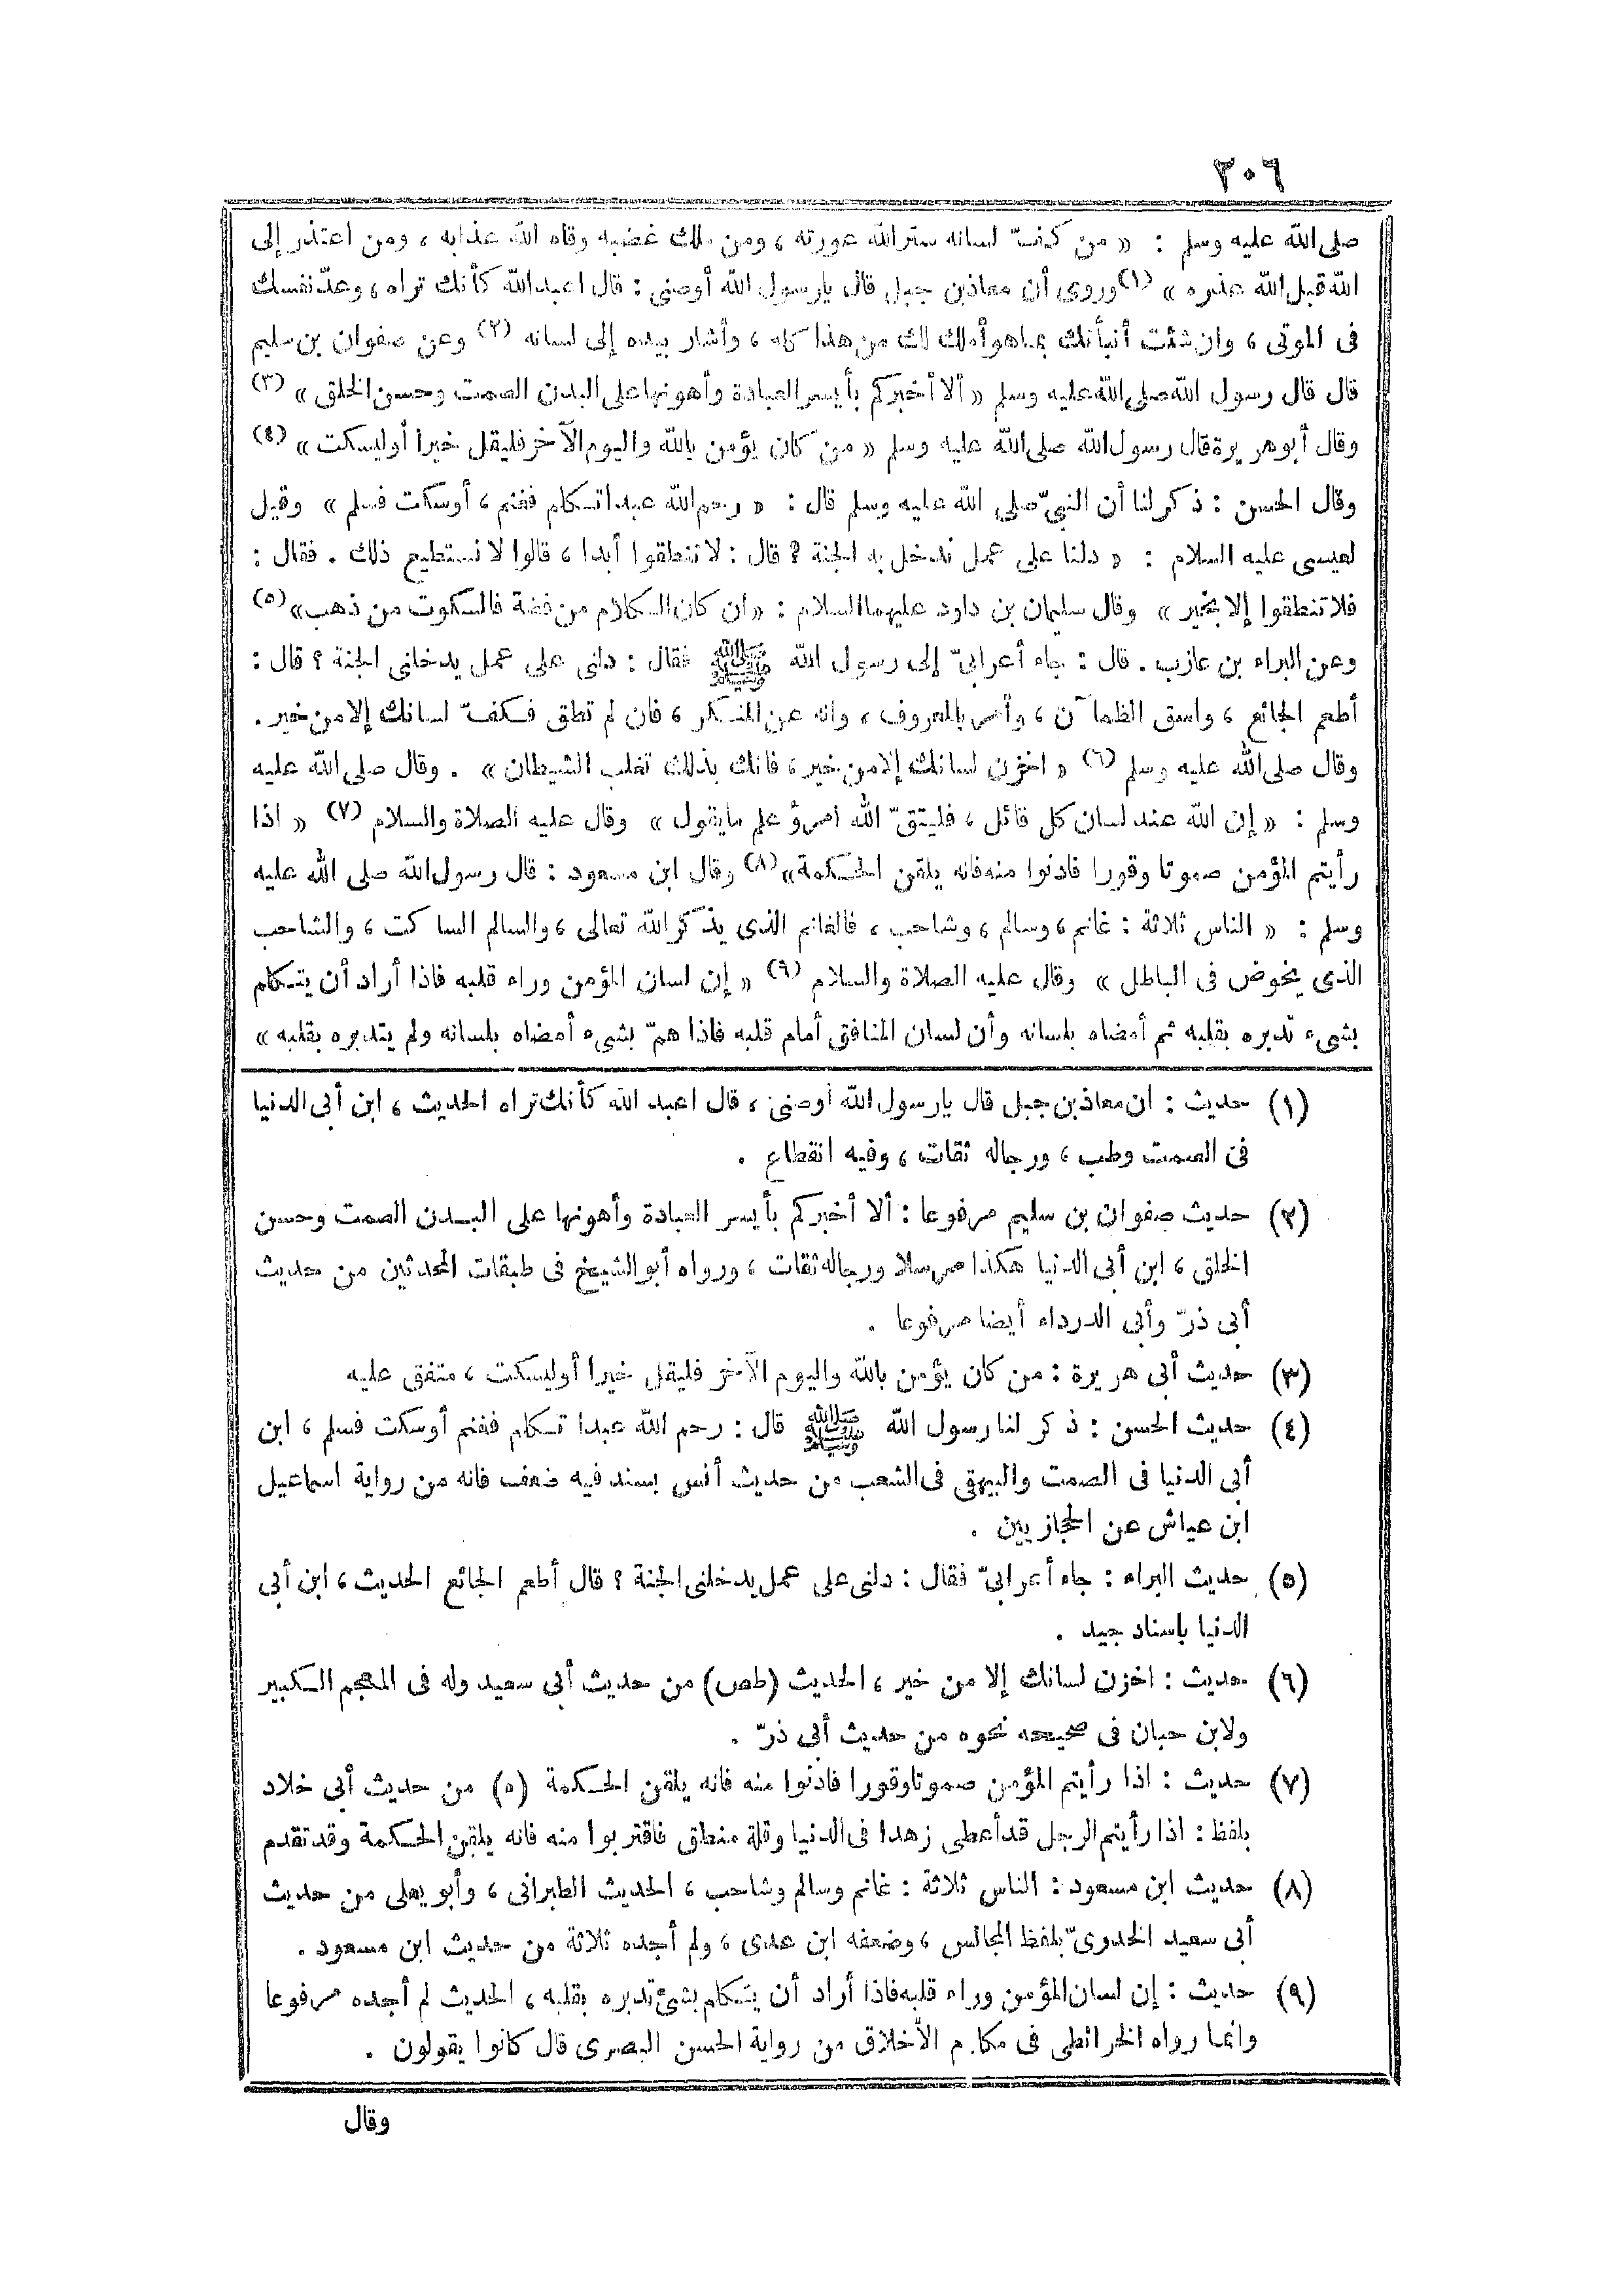 ٣٠٦
صلى الله عليه وسلم : « من كفّ لسانه ستر الله عورته ، ومن ملك غضبه وقاه الله عذابه ، ومن اعتذر إلى
الله قبل الله عذره » (١) وروى أن معاذ بن جبل قال يارسول الله أوصنى : قال اعبد الله كأنك تراه ، وعدّ نفسك
فى الموتى ، وان شئت أنبأنك بما هو أملك لك من هذا كله ، وأشار بيده إلى لسانه (٢) وعن صفوان بن سليم
قال قال رسول الله صلى الله عليه وسلم « ألا أخبركم بأيسر العبادة وأهونها على البدن الصمت وحسن الخلق » (٣)
وقال أبو هريرة قال رسول الله صلى الله عليه وسلم « من كان يؤمن بالله واليوم الآخر فليقل خيرا أوليسكت » (٤)
وقال الحسن : ذكر لنا أن النبىّ صلى الله عليه وسلم قال : « رحم الله عبدا تكلم فغنم ، أوسكت فسلم » وقيل
لعيسى عليه السلام : « دلنا على عمل ندخل به الجنة ? قال : لا تنطقوا أبدا ، قالوا لا نستطيع ذلك . فقال :
فلا تنطقوا إلا بخير » وقال سليمان بن داود عليهما السلام : « ان كان الكلام من فضة فالسكوت من ذهب » (٥)
وعن البراء بن عازب . قال : جاء أعرابىّ إلى رسول الله ﷺ فقال : دلنى على عمل يدخلنى الجنة ؟ قال :
أطعم الجائع ، واسق الظمآن ، وأمر بالمعروف ، وانه عن المنكر ، فان لم تطق فكفّ لسانك إلا من خير .
وقال صلى الله عليه وسلم (٦) « اخزن لسانك إلا من خير ، فانك بذلك تغلب الشيطان » . وقال صلى الله عليه
وسلم : « إن الله عند لسان كل قائل ، فليتقّ الله امرؤ علم مايقول » وقال عليه الصلاة والسلام (٧) « اذا
رأيتم المؤمن صموتا وقورا فادنوا منه فانه يلقن الحكمة » (٨) وقال ابن مسعود : قال رسول الله صلى الله عليه
وسلم : « الناس ثلاثة : غانم ، وسالم ، وشاحب ، فالغانم الذى يذكر الله تعالى ، والسالم الساكت ، والشاحب
الذى يخوض فى الباطل » وقال عليه الصلاة والسلام (٩) « إن لسان المؤمن وراء قلبه فاذا أراد أن يتكلم
بشىء تدبره بقلبه ثم أمضاه بلسانه وأن لسان المنافق أمام قلبه فاذا همّ بشىء أمضاه بلسانه ولم يتدبره بقلبه »
(١) حديث : ان معاذ بن جبل قال يارسول الله أوصنى ، قال اعبد الله كأنك تراه الحديث ، ابن أبى الدنيا
فى الصمت وطب ، ورجاله ثقات ، وفيه انقطاع .
(٢) حديث صفوان بن سليم مرفوعا : ألا أخبركم بأيسر العبادة وأهونها على البدن الصمت وحسن
الخلق ، ابن أبى الدنيا هكذا مرسلا ورجاله ثقات ، ورواه أبو الشيخ فى طبقات المحدثين من حديث
أبى ذرّ وأبى الدرداء أيضا مرفوعا .
(٣) حديث أبى هريرة : من كان يؤمن بالله واليوم الآخر فليقل خيرا أوليسكت ، متفق عليه
(٤) حديث الحسن : ذكر لنا رسول الله ﷺ قال : رحم الله عبدا تكلم فغنم أوسكت فسلم ، ابن
أبى الدنيا فى الصمت والبيهقى فى الشعب من حديث أنس بسند فيه ضعف فانه من رواية اسماعيل
ابن عياش عن الحجازيين .
(٥) حديث البراء : جاء أعرابىّ فقال : دلنى على عمل يدخلنى الجنة ؟ قال أطعم الجائع الحديث ، ابن أبى
الدنيا بإسناد جيد .
(٦) حديث : اخزن لسانك إلا من خير ، الحديث (طص) من حديث أبى سعيد وله فى المعجم الكبير
ولابن حبان فى صحيحه نحوه من حديث أبى ذرّ .
(٧) حديث : اذا رأيتم المؤمن صموتا وقورا فادنوا منه فانه يلقن الحكمة (ه) من حديث أبى خلاد
بلفظ : اذا رأيتم الرجل قد أعطى زهدا فى الدنيا وقلة منطق فاقتربوا منه فانه يلقن الحكمة وقد تقدم
(٨) حديث ابن مسعود : الناس ثلاثة : غانم وسالم وشاحب ، الحديث الطبرانى ، وأبو يعلى من حديث
أبى سعيد الخدورىّ بلفظ المجالس ، وضعفه ابن عدى ، ولم أجده ثلاثة من حديث ابن مسعود .
(٩) حديث : إن لسان المؤمن وراء قلبه فاذا أراد أن يتكلم بشئ تدبره بقلبه ، الحديث لم أجده مرفوعا
وانما رواه الخرائطى فى مكارم الأخلاق من رواية الحسن البصرى قال كانوا يقولون .
وقال